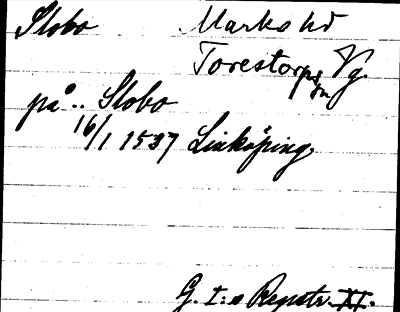 Slobo Marks hd
Torestorps sn Vg.
på .. Slobo
16/1 1537 Linköping
G. I:s Registr. XI.